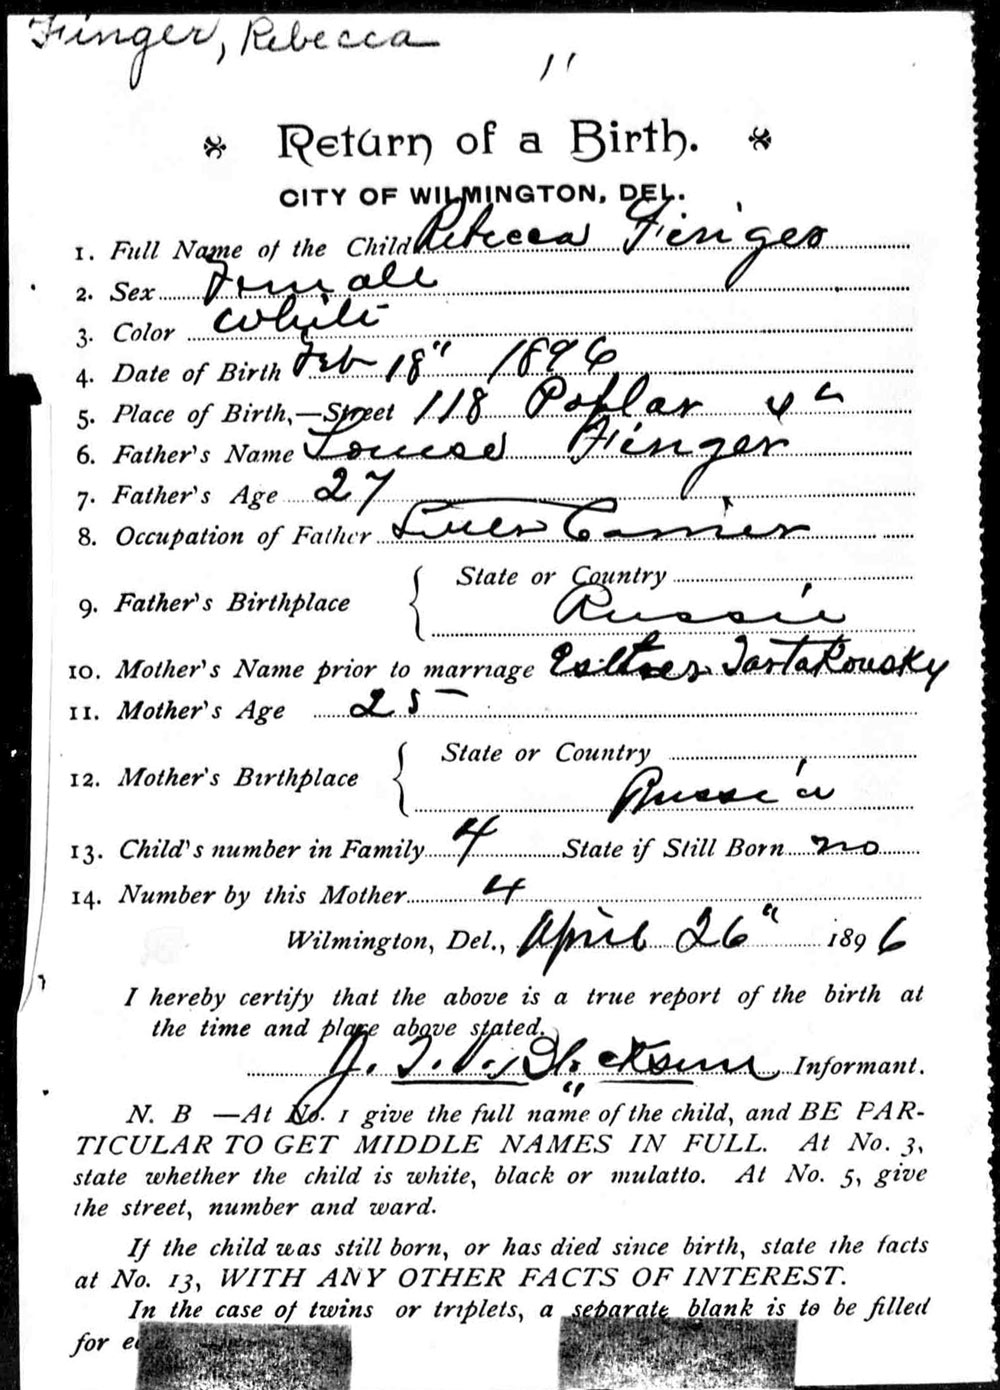 Finger, Rebecca
11
Return of a Birth.
CITY OF WILMINGTON, DEL.
1. Full Name of the Child Rebecca Finger
2. Sex Female
3. Color White
4. Date of Birth Feb 18" 1896
5. Place of Birth,—Street 118 Poplar
6. Father's Name Louise Finger
7. Father's Age 27
8. Occupation of Father Carrier
9. Father's Birthplace { State or Country
Russia
10. Mother's Name prior to marriage Esther Tartakowsky
11. Mother's Age 25
12. Mother's Birthplace { State or Country
Russia
13. Child's number in Family 4 State if Still Born no
14. Number by this Mother 4
Wilmington, Del., April 26" 1896
I hereby certify that the above is a true report of the birth at
the time and place above stated.
Informant.
N. B —At No. 1 give the full name of the child, and BE PAR-
TICULAR TO GET MIDDLE NAMES IN FULL. At No. 3,
state whether the child is white, black or mulatto. At No. 5, give
the street, number and ward.
If the child was still born, or has died since birth, state the facts
at No. 13, WITH ANY OTHER FACTS OF INTEREST.
In the case of twins or triplets, a separate blank is to be filled
for